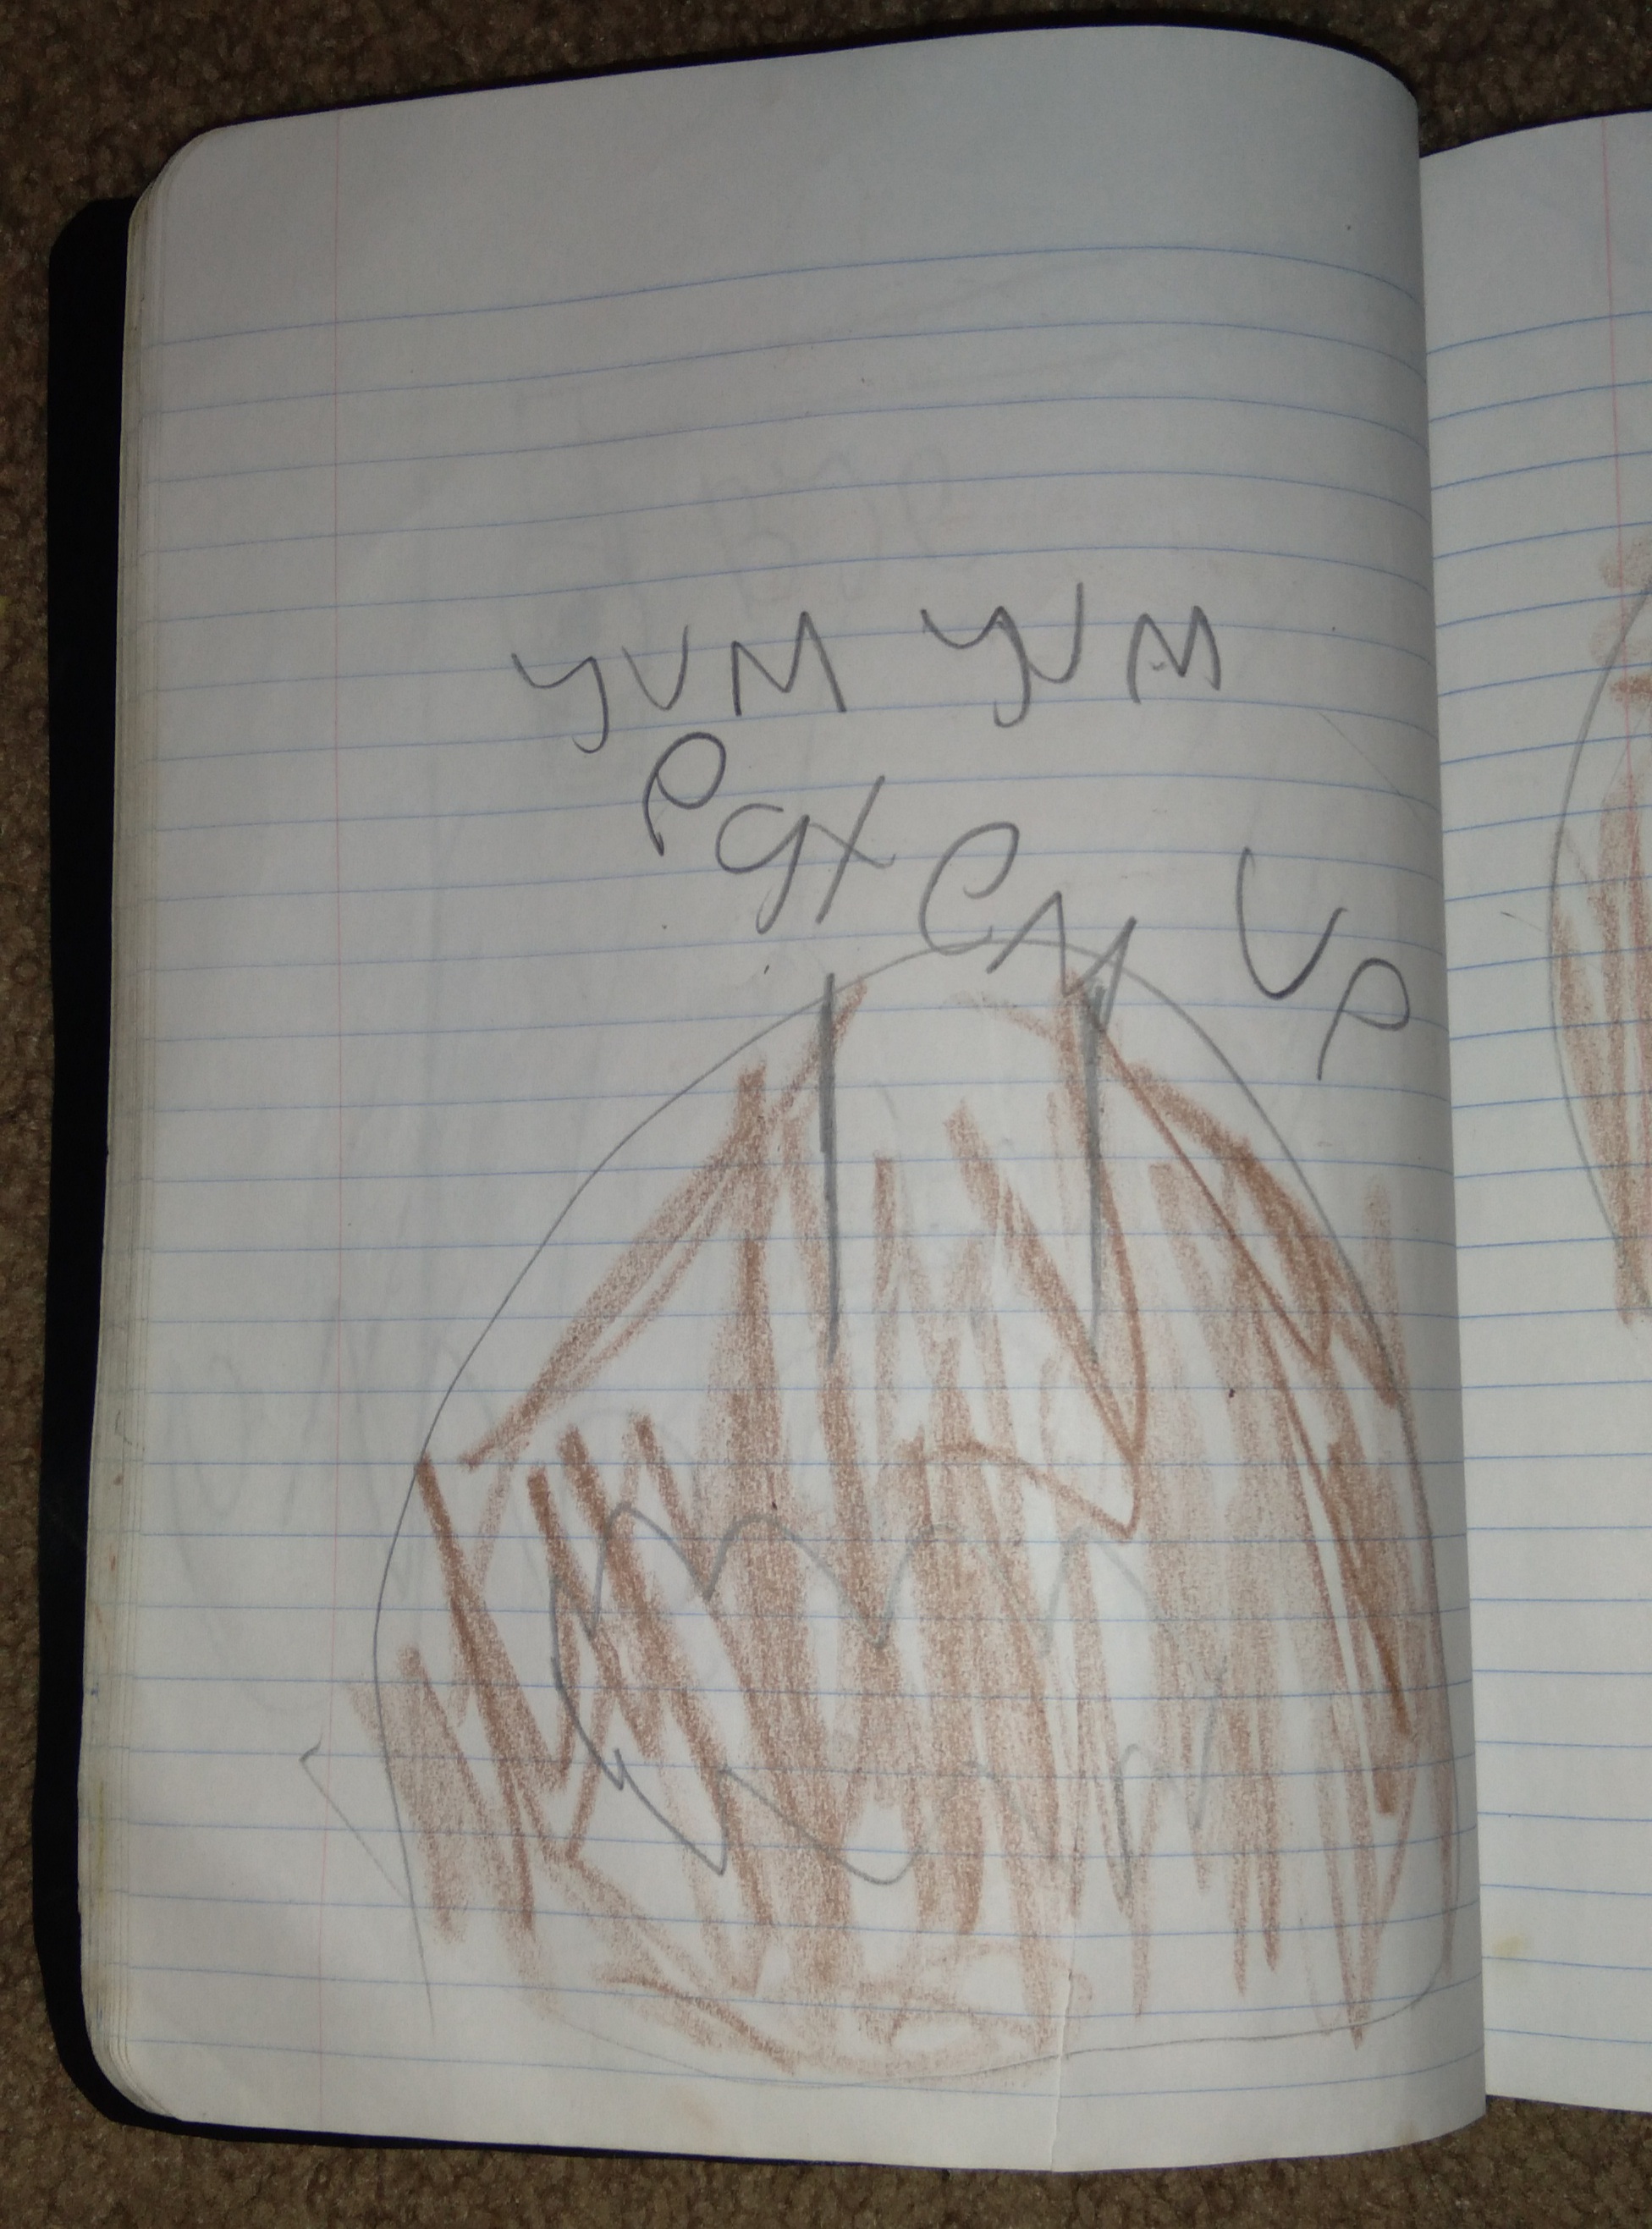 YUM YUM
PGX CM UP